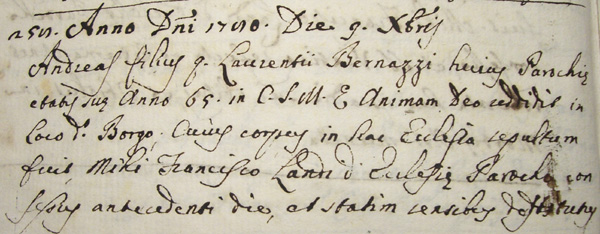 Anno Dñi 1710. Die 9. Xbris
Andreas filius q. Laurentii Bernazzi huius Parochię
etatis suę Anno 65. in C. S. M. E Animam Deo reddidit in
Loco d. Borgo, Cuius corpus in hac Ecclesia sepultum
fuit, Mihi Francisco Landi d. Ecclesię Parocho con
fessus antecedenti die, et statim sensibus destitutus